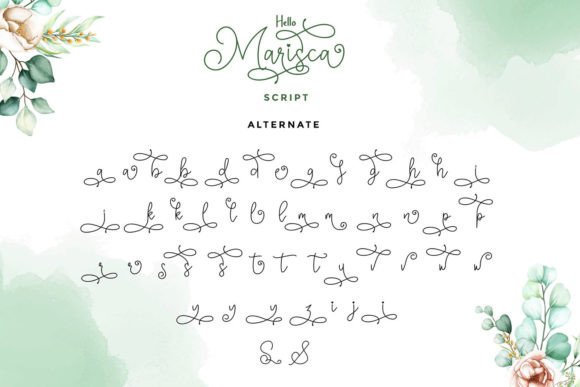 Hello
Marisca
SCRIPT
ALTERNATE
a a b b d d e g f g h h i
j k k l l l l m m n n p p
r r s s s t t t y r s w w
y y y z i j i
Q S